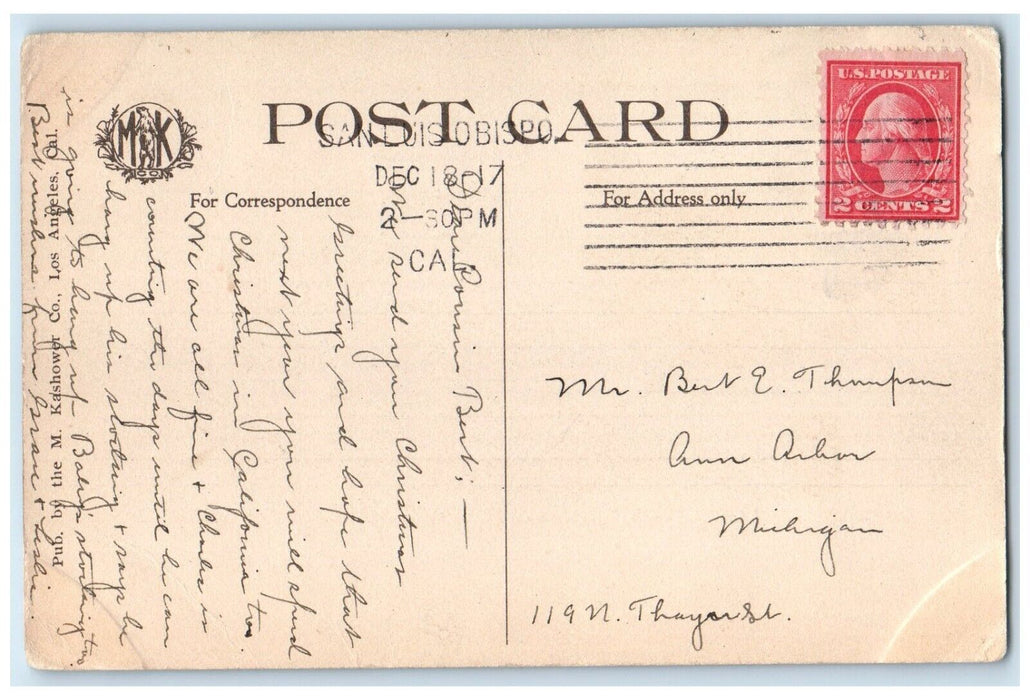 POST CARD
MK
SAN LUIS OBISPO
DEC 18 17
2-30PM
CAL
U.S. POSTAGE
2 CENTS 2
For Correspondence
For Address only
Dear Cousin Bert; —
We send you Christmas
Greetings and hope that
next year you will spend
Christmas in California too.
We are all fine & Charles is
counting the days until he can
hang up his stocking & says he
is going to hang up Baby's stocking too
Best wishes from &
Mr. Bert E. Thompson
Ann Arbor
Michigan
119 N. Thayer St.
Pub. by the M. Kashower Co., Los Angeles, Cal.